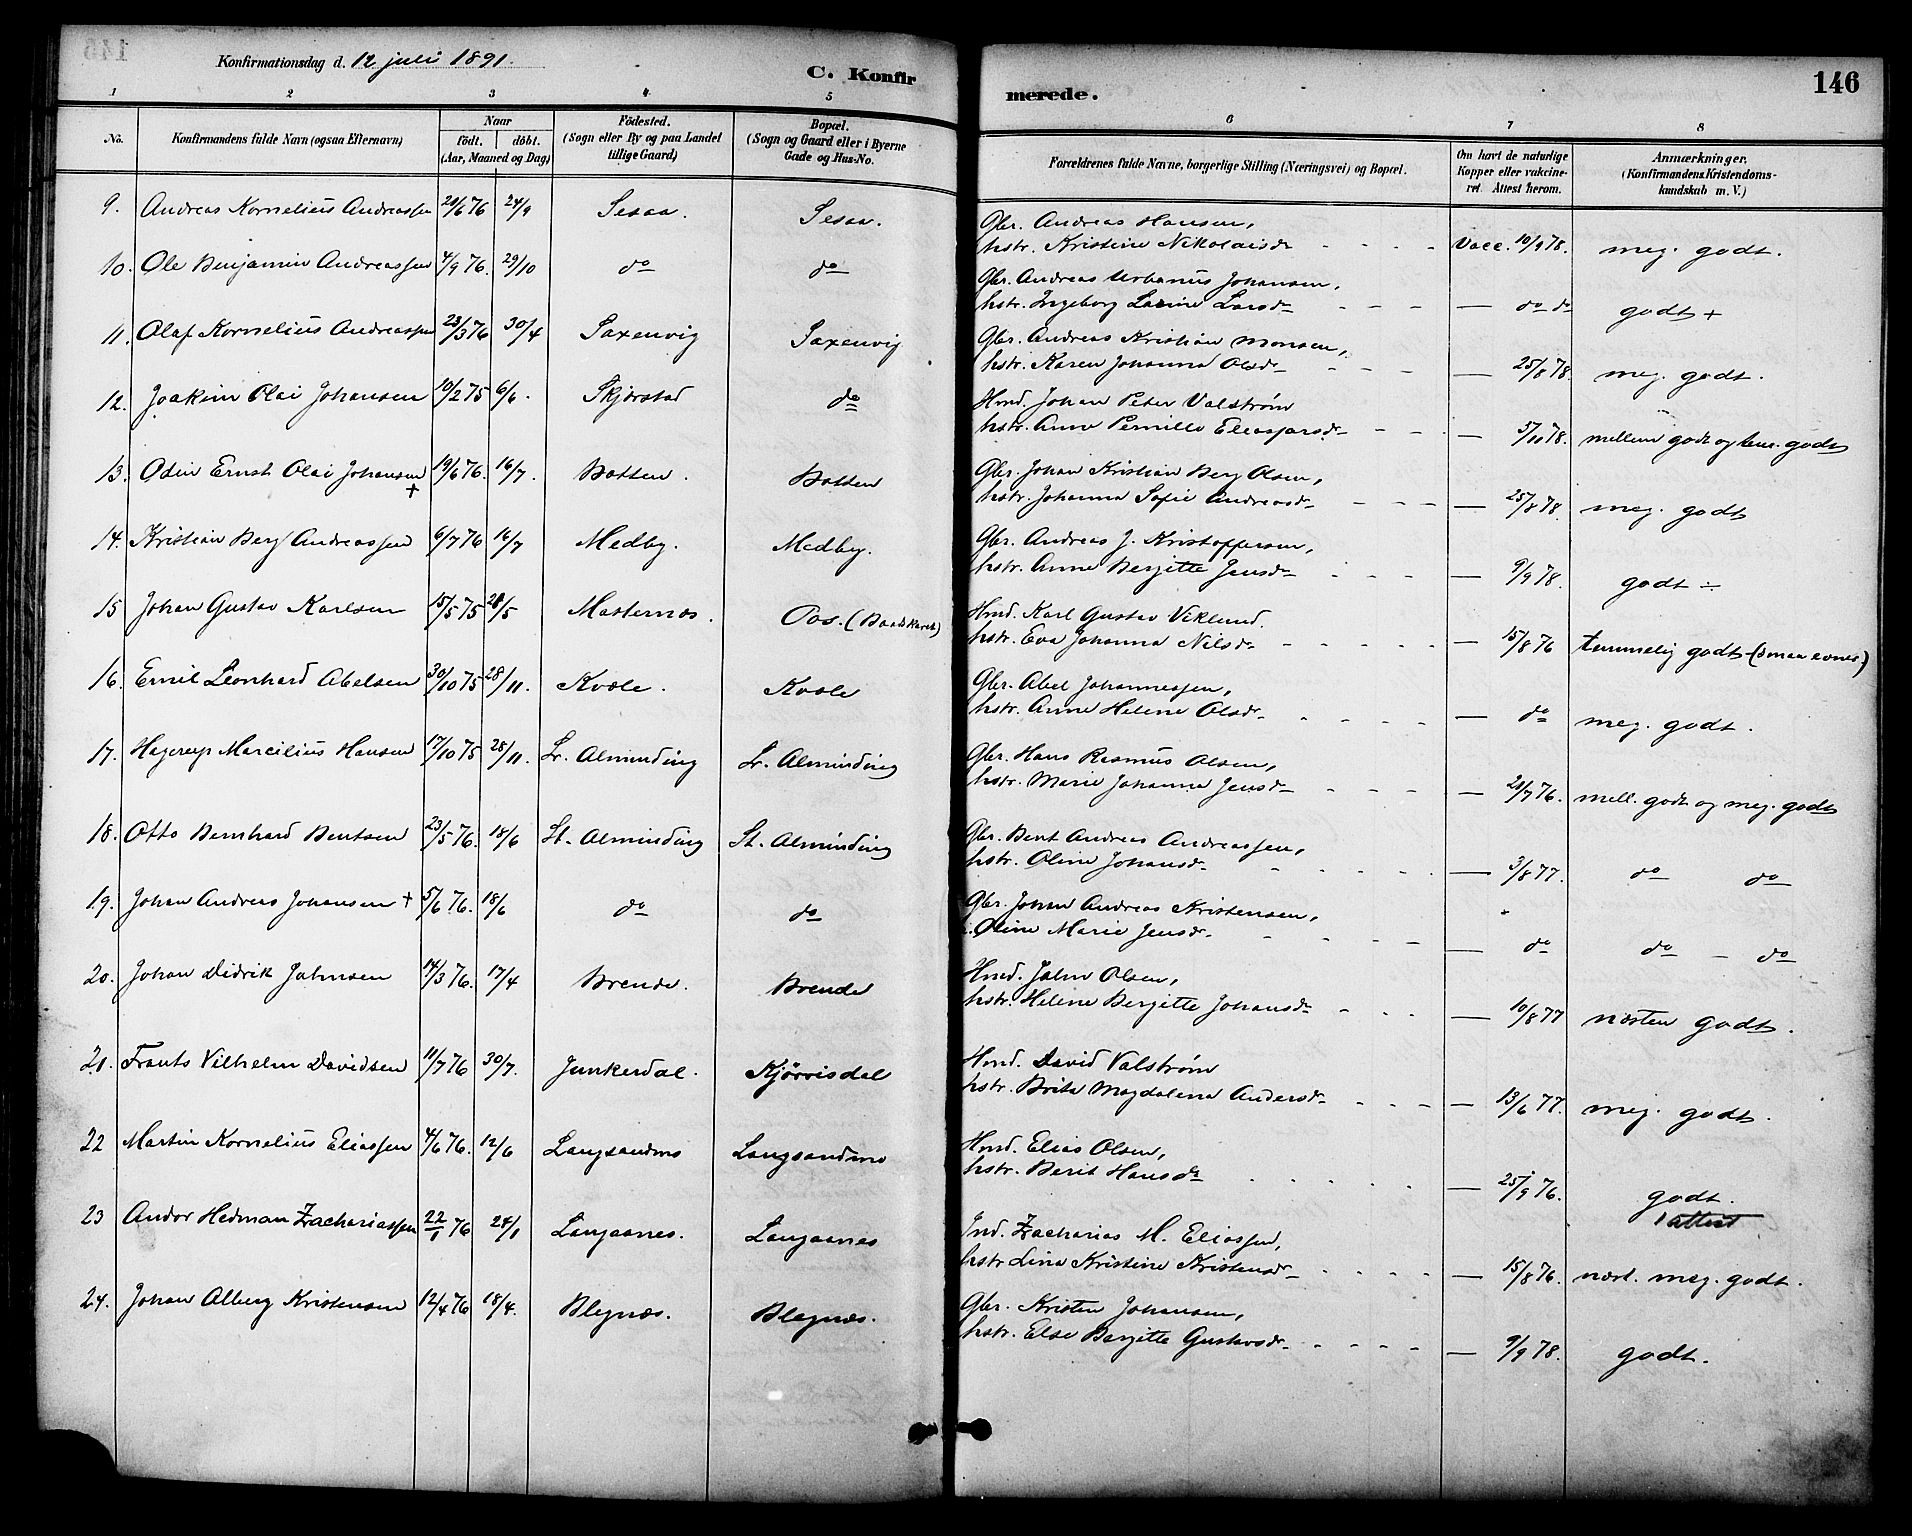 146
Konfirmationsdag d. 12 juli 1891.
C. Konfir
merede.
1 2 3 4 5 6 7 8
No. Konfirmandens fulde Navn (ogsaa Efternavn) Naar födt. döbt. (Aar, Maaned og Dag) Födested. (Sogn eller By og paa Landet tillige Gaard) Bopæl. (Sogn og Gaard eller i Byerne Gade og Hus-No. Forældrenes fulde Navne, borgerlige Stilling (Næringsvei) og Bopæl. Om havt de naturlige Kopper eller vakcineret. Attest herom. Anmærkninger. (Konfirmandens Kristendomskundskab m. V.)
9. Andreas Kornelius Andreassen 24/9 Sesaa. Sesaa. Gbr. Andreas Hansen,
hstr. Kristine Nikolaisdr - - - - Vacc. 10/9 78. meg. godt.
10. Ole Benjamin Andreassen 4/9 76. 29/10 do do Gbr. Andreas Urbanus Johansen,
hstr. Ingeborg Larsdr - - - — do do godt +
11. Olaf Kornelius Andreassen 23/3 76 30/4 Saxenvig Saxenvig Gbr. Andreas Kristian Monsen,
hstr. Karen Johanna Olsdr - - - — 25/8 78. meg. godt.
12. Joakim Olai Johansen 10/2 75 6/6. Skjørstad do Hmd. Johan Peter Valstrøm
hstr. Anne Pernille Eliassardr - - - — 3/10 78. mellem godt og tem. godt
13. Odin Ernst Olai Johansen + 19/6 76. 16/7. Botten. Botten Gbr. Johan Kristian Berg Olsen,
hstr. Johanna Sofie Andreasdr - - - — 25/8 78. meg. godt
14. Kristian Berg Andreassen 6/7 76 16/7 Medby. Medby. Gbr. Andreas J. Kristoffersen,
hstr. Anne Bergitte Jensdr - - - — 9/9 78. godt ÷
15 Johan Gustav Karlsen 15/5 75 28/5 Masternes. Oos. (Baadskaret) Hmd. Karl Gustav Viklund.
hstr. Eva Johanna Nilsdr - - - - — 15/8 76 temmelig godt (smaa evner)
16. Emil Leonhard Abelsen 30/10 75 28/11. Kvæle. Kvæle Gbr. Abel Johannessen,
hstr. Anne Helene Olsdr - - - - — do meg. godt.
17. Hagerup Marcilius Hansen 17/10 75 28/11. Lr. Alminding Lr. Alminding Gbr. Hans Rasmus Olsen,
hstr. Marie Johanna Jensdr - - - - — 21/7 76. mell. godt og meg. godt
18. Otto Bernhard Bentsen 23/5 76. 18/6 St. Alminding St. Alminding Gbr. Bent Andreas Andreassen,
hstr. Oline Johansdr - - - - — 3/8 77. do do
19. Johan Andreas Johansen + 5/6 76. 18/6 do do Gbr. Johan Andreas Kristensen,
Oline Marie Jensdr - - - — do do - do
20. Johan Didrik Jahnsen 14/3 76. 17/4 Brende. Brende Hmd. Jahn Olsen,
hstr. Helene Bergitte Johansdr - - - — 10/8 77 næsten godt.
21. Frants Vilhelm Davidsen 11/7 76 30/7. Junkerdal. Kjørrisdal Hmd. David Valstrøm
hstr. Brita Magdalena Andersdr - - - — 13/6 77. meg. godt.
22 Martin Kornelius Eliassen 4/6 76. 12/6 Langsandmo Langsandmo Hmd. Elias Olsen,
hstr. Berit Hansdr - - - - - — 25/9 76. godt.
attest
23 Andor Hedman Zachariassen 22/1 76 24/1 Langaanes. Langaanes Ind. Zacharias M. Eliassen,
hstr Lina Kristine Kristensdr - - - - — 15/8 76. næst. meg. godt.
24. Johan Alberg Kristensen 12/4 76 18/4. Blegnæs. Blegnæs. Gbr. Kristen Johansen,
hstr. Else Bergitte Gustavsdr - - - - — 9/9 78. godt.